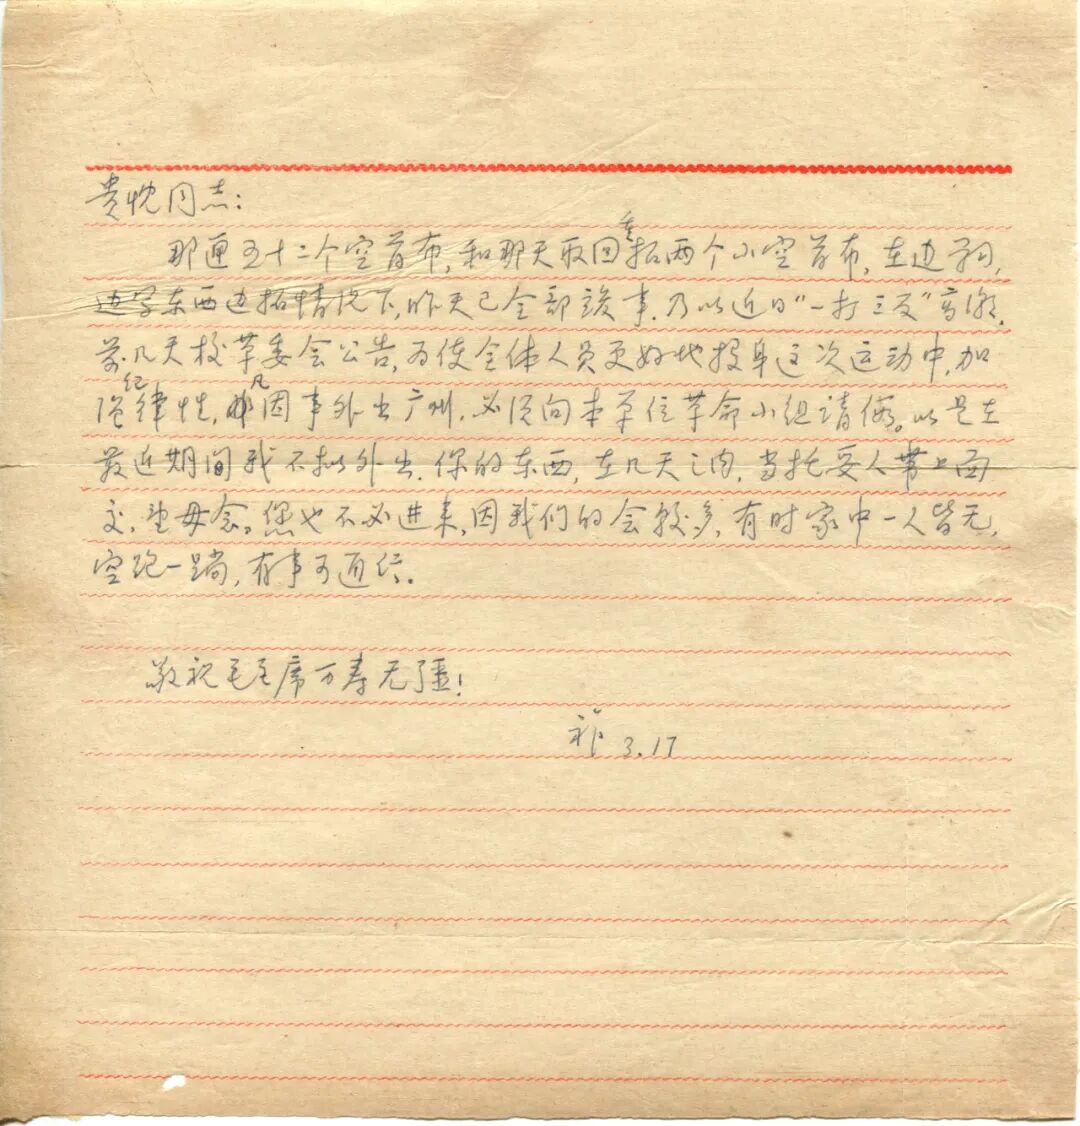 贵忱同志：
那匣五十二个空首布，和那天取回重拓两个小空首布，在边刻，
边写东西边拓情况下，昨天已全部竣事。乃以近日“一打三反”高潮，
前几天校革委会公告，为使全体人员更好地投身这次运动中，加
强纪律性，凡因事外出广州，必须向本单位革命小组请假。以是在
最近期间我不拟外出。你的东西，在几天之内，当托妥人带上面
交，望毋念。您也不必进来，因我们的会较多，有时家中一人皆无，
空跑一趟，有事可通信。
敬祝毛主席万寿无疆！
3.17